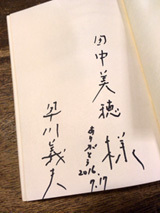 田中美穂
様
ありがとう
2016.
9.17
早川義夫